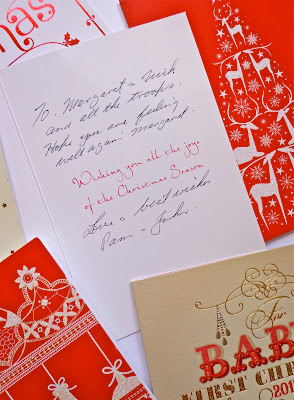 mas
To. Margaret & Nick
and all the troops.
Hope you are feeling
well again Margaret.
Wishing you all the joys
of the Christmas Season
Love & best wishes
Pam & John.
For
BAB
FIRST CH
201